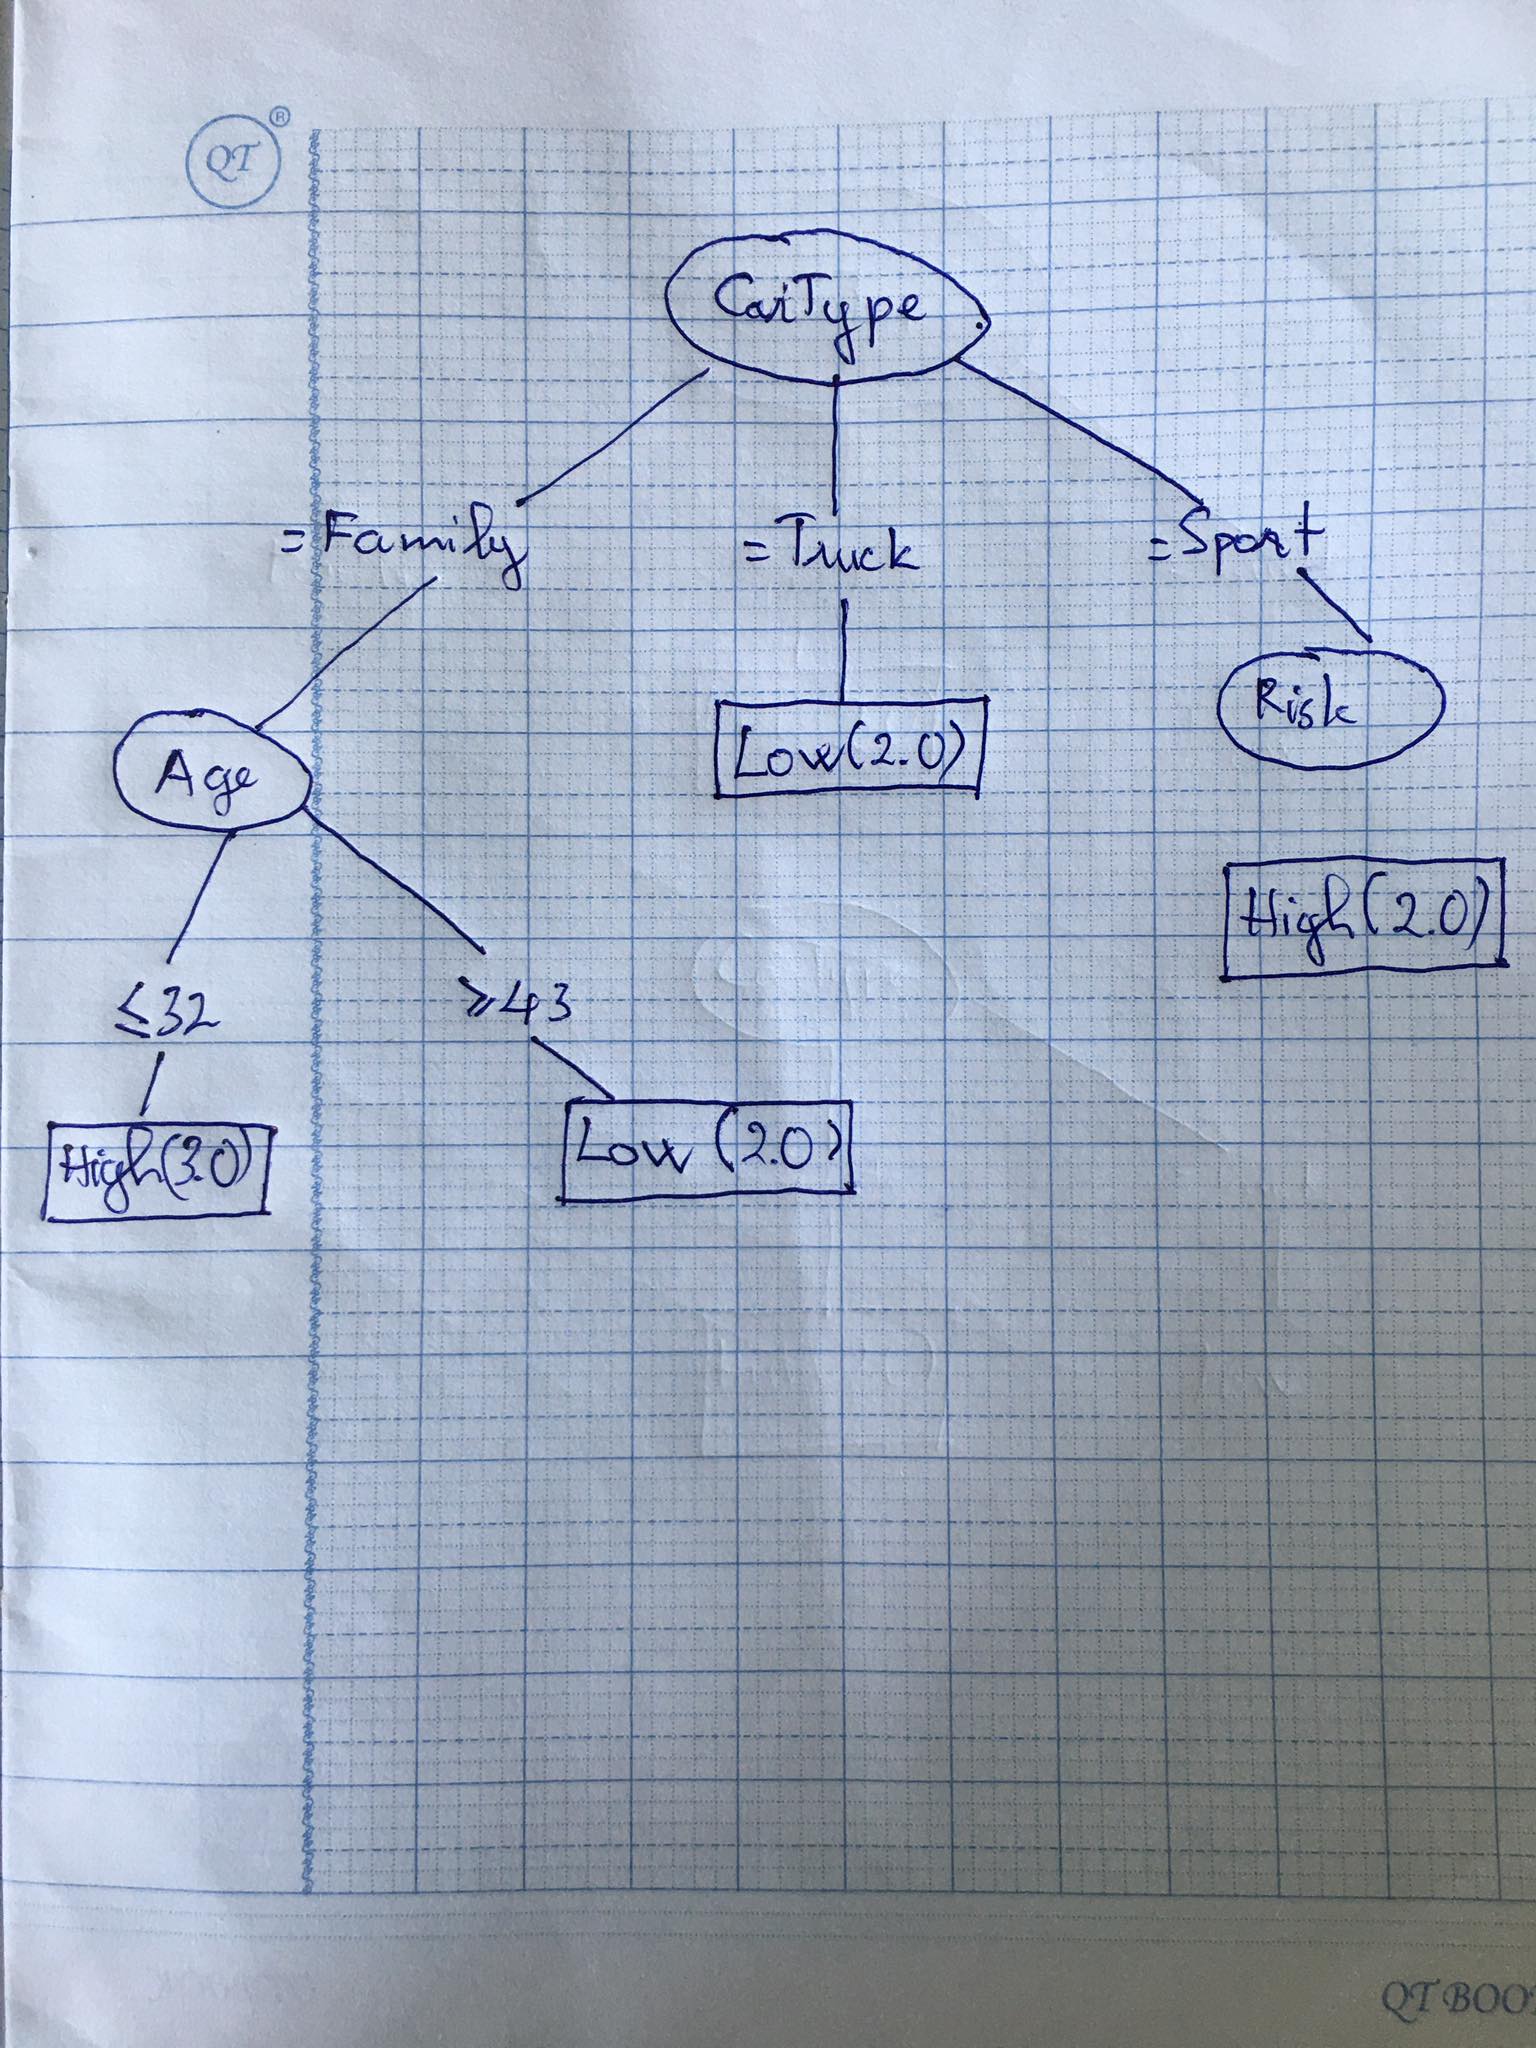 QT
®
CarType
=Family
=Truck
=Sport
Age
Low(2.0)
Risk
High(2.0)
≤32
≥43
High(3.0)
Low (2.0)